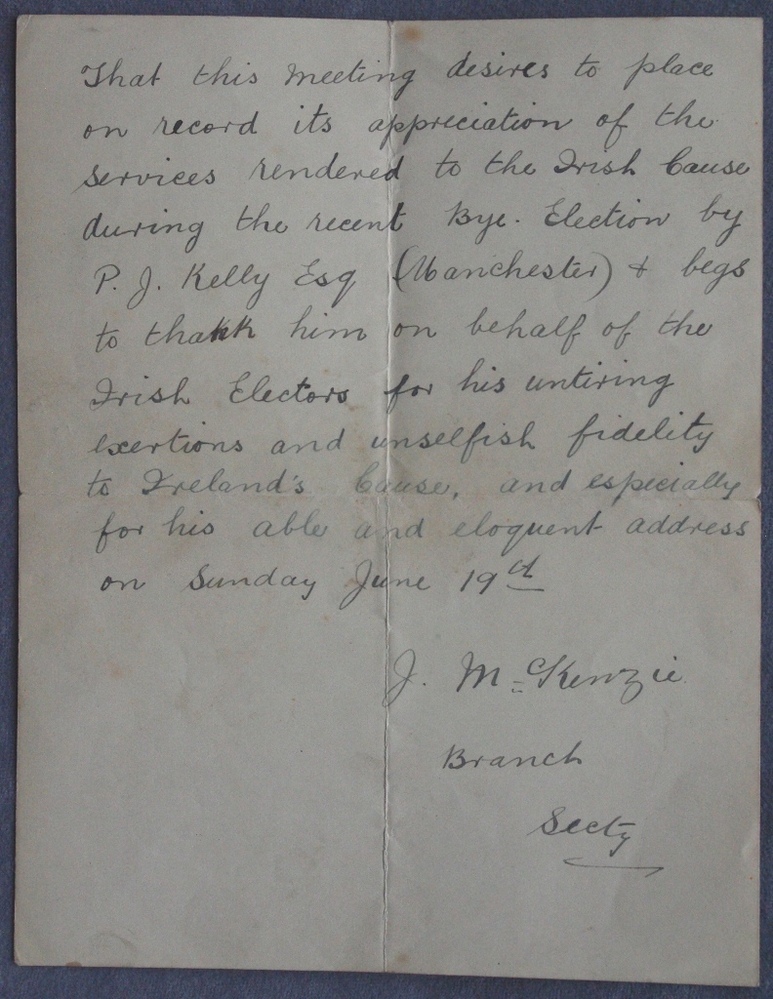 That this Meeting desires to place
on record its appreciation of the
services rendered to the Irish Cause
during the recent Bye. Election by
P. J. Kelly Esq (Manchester) & begs
to thank him on behalf of the
Irish Electors for his untiring
exertions and unselfish fidelity
to Ireland's Cause, and especially
for his able and eloquent address
on Sunday June 19th
J. McKenzie
Branch
Secty